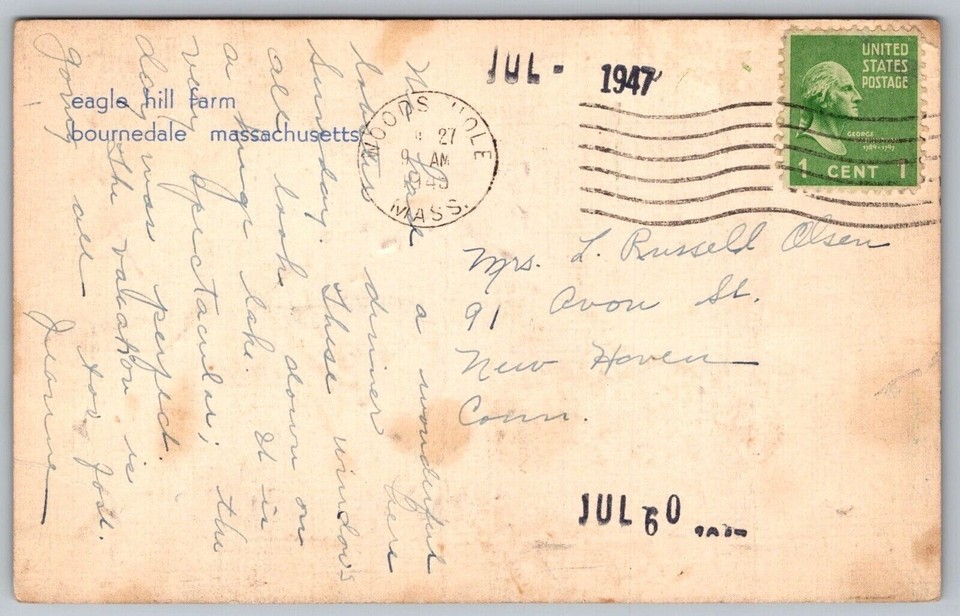 eagle hill farm
bournedale massachusetts
JUL - 1947
WOODS HOLE
27
9 AM
MASS.
UNITED
STATES
POSTAGE
GEORGE
WASHINGTON
1789-1797
1 CENT 1
Mrs. L. Russell Olsen
91 Avon St.
New Haven
Conn.
JUL 60
had a wonderful
lobster dinner here
Sunday. These windows
all look down on
a huge lake. It is
very spectacular; the
day was perfect.
The vacation is
going all too fast.
Jeanne